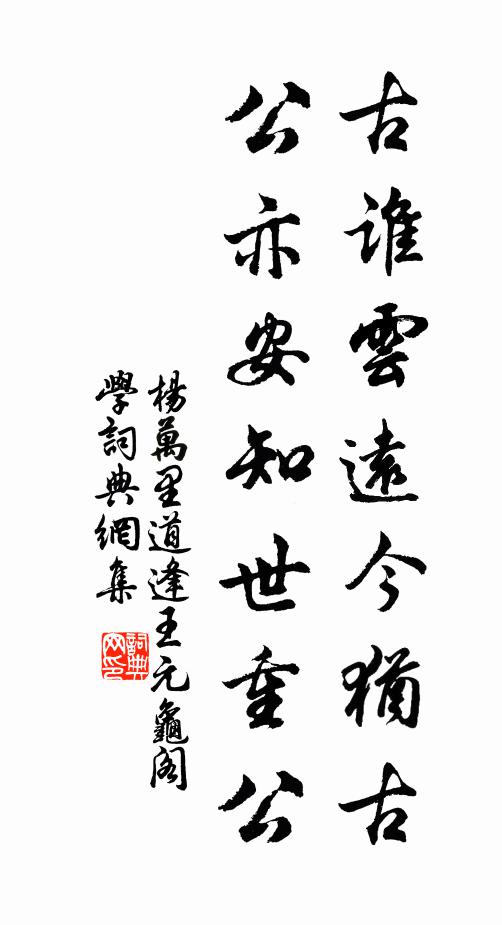 古誰雲遠今猶古
公亦安知世重公
楊萬里道逢王元龜閣
學詞典網集
詞典网印